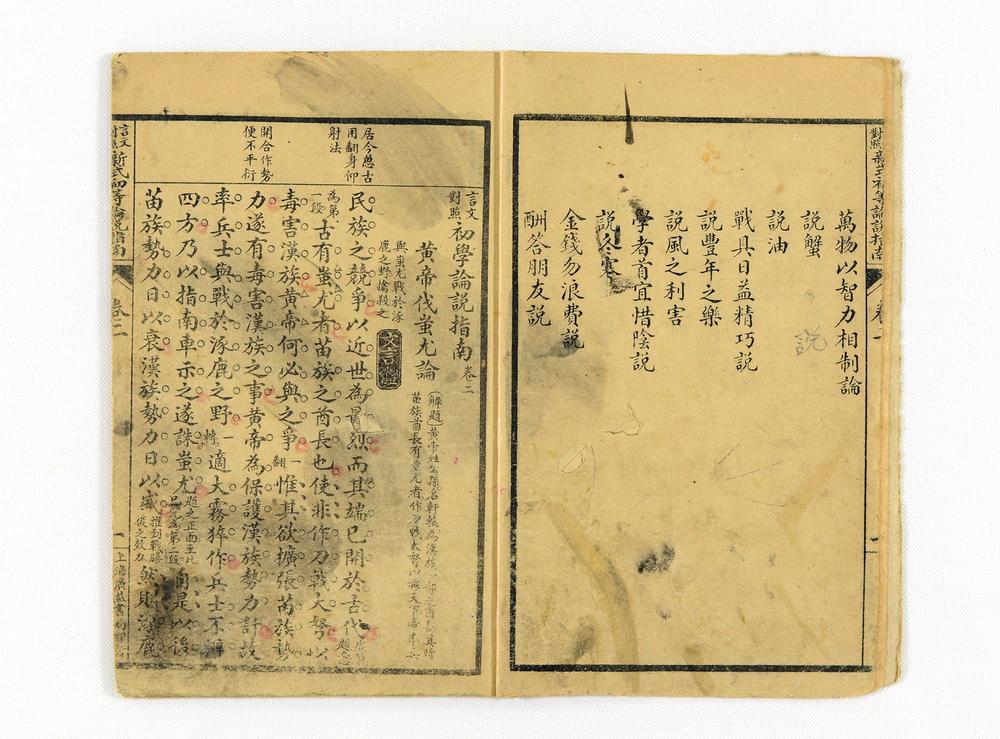 對照新式初等論說指南
卷二
萬物以智力相制論
說蟹
說油
戰具日益精巧說
說豐年之樂
說風之利害
學者首宜惜陰說
說冬寒
金錢勿浪費說
酬答朋友說
說
言文對照初學論說指南卷二
黃帝伐蚩尤論
與蚩尤戰於涿
鹿之野擒殺之
民族之競爭以近世為最烈而其端已開於古代
為第一段
古有蚩尤者苗族之酋長也使非作刀戟大弩以
毒害漢族黃帝何必與之爭一翻惟其欲擴張苗族勢
力遂有毒害漢族之事黃帝為保護漢族勢力計故
率兵士與戰於涿鹿之野一轉適大霧猝作兵士不辨
四方乃以指南車示之遂誅蚩尤題之正面至此
是以後
苗族勢力日以衰漢族勢力日以盛推到戰勝後之效力然則涿鹿
居今思古
用翻身仰
射法
開合作勢
便不平衍
言文對照新式初等論說指南
卷二
一
上海廣益書局